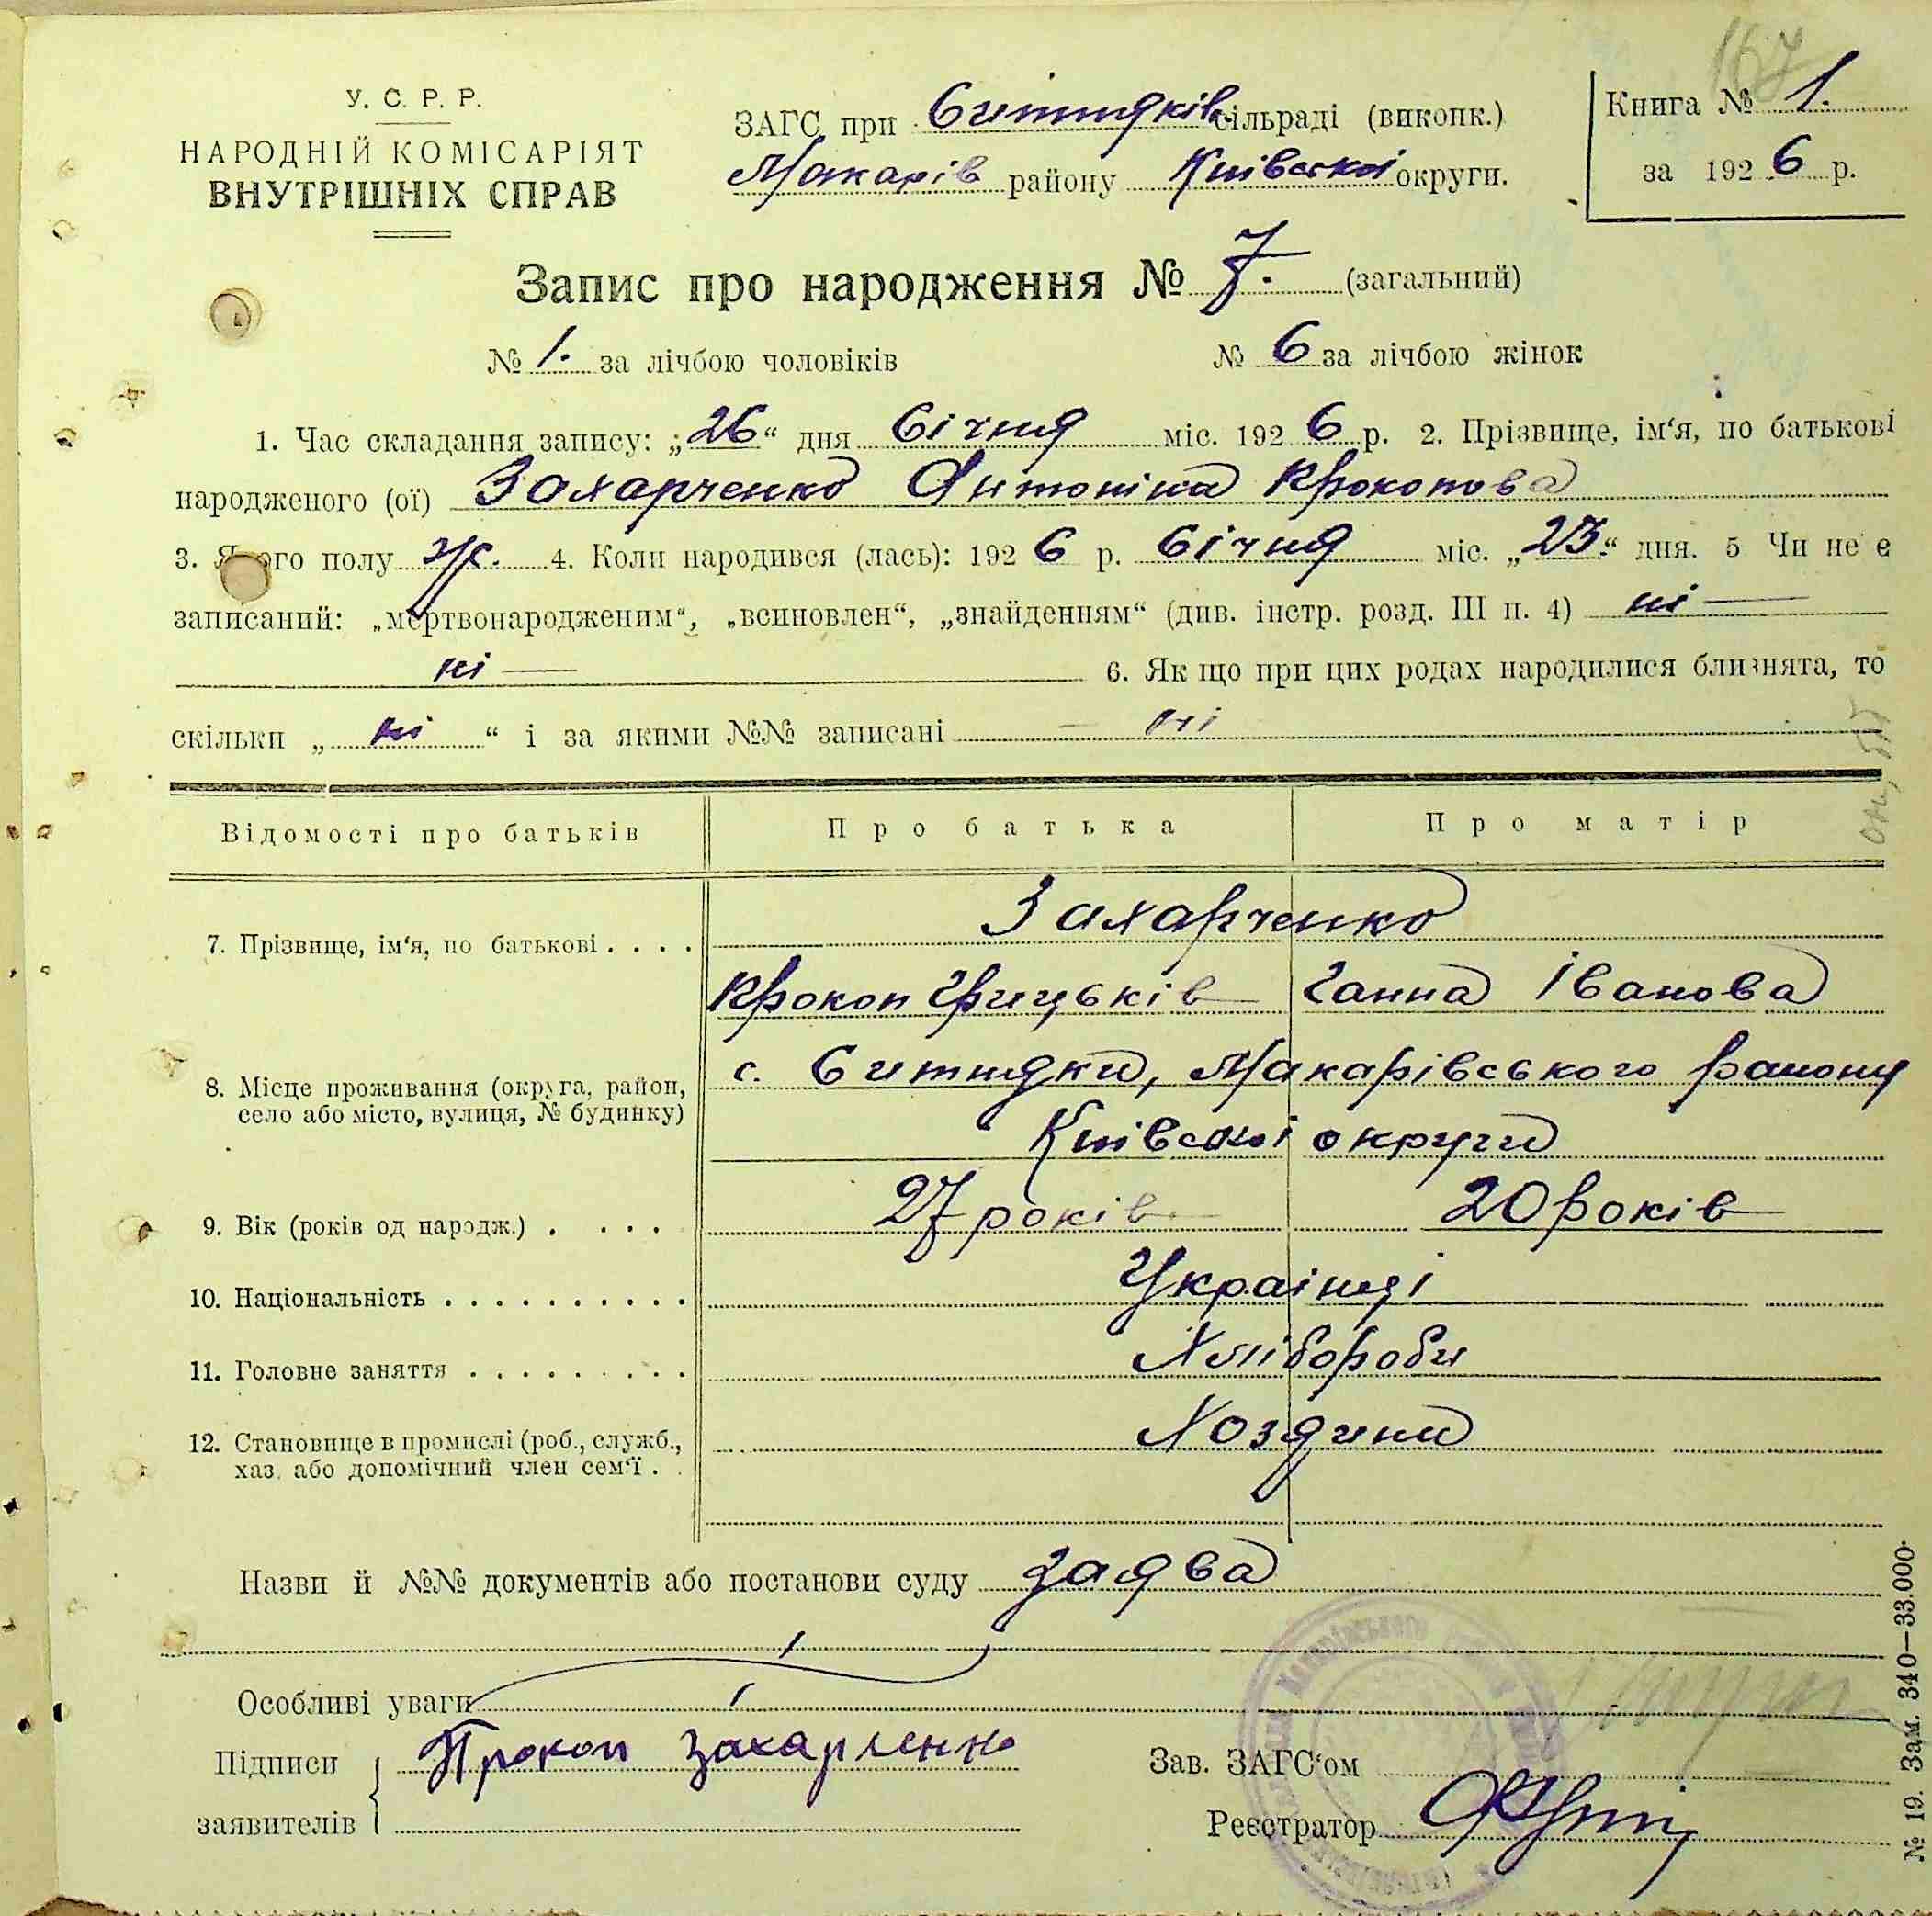 167
У. С. Р. Р.
НАРОДНІЙ КОМІСАРІЯТ
ВНУТРІШНІХ СПРАВ
ЗАГС при Ситнядків. сільраді (виконк.)
Макарів району Київської округи.
Книга № 1.
за 1926 р.
Запис про народження № 7. (загальний)
№ 1. за лічбою чоловіків № 6 за лічбою жінок
1. Час складання запису: „26“ дня Січня міс. 1926 р. 2. Прізвище, ім‘я, по батькові
народженого (ої) Захарченко Антоніна Прокопова
3. Якого полу ж. 4. Коли народився (лась): 1926 р. Січня міс. „23.“ дня. 5 Чи не є
записаний: „мертвонародженим“, „всиновлен“, „знайденням“ (див. інстр. розд. III п. 4) ні —
ні — 6. Як що при цих родах народилися близнята, то
скільки „ ні “ і за якими №№ записані — ні
Відомості про батьків Про батька Про матір
7. Прізвище, ім‘я, по батькові . . . . Захарченко
Прокоп Грицьків Ганна Іванова
8. Місце проживання (округа, район, с. Ситнядки, Макарівського району
село або місто, вулиця, № будинку) Київської округи
9. Вік (років од народж.) . . . . 27 років 20 років
10. Національність . . . . . . . . . . Українці
11. Головне заняття . . . . . . . . . Хлібороби
12. Становище в промислі (роб., служб., Хозяини
хаз. або допомічний член сем‘ї . .
Назви й №№ документів або постанови суду заява
Особливі уваги
Підписи Прокоп Захарченко
заявителів
Зав. ЗАГС‘ом
Реєстратор
№ 19. Зам. 340—33.000.